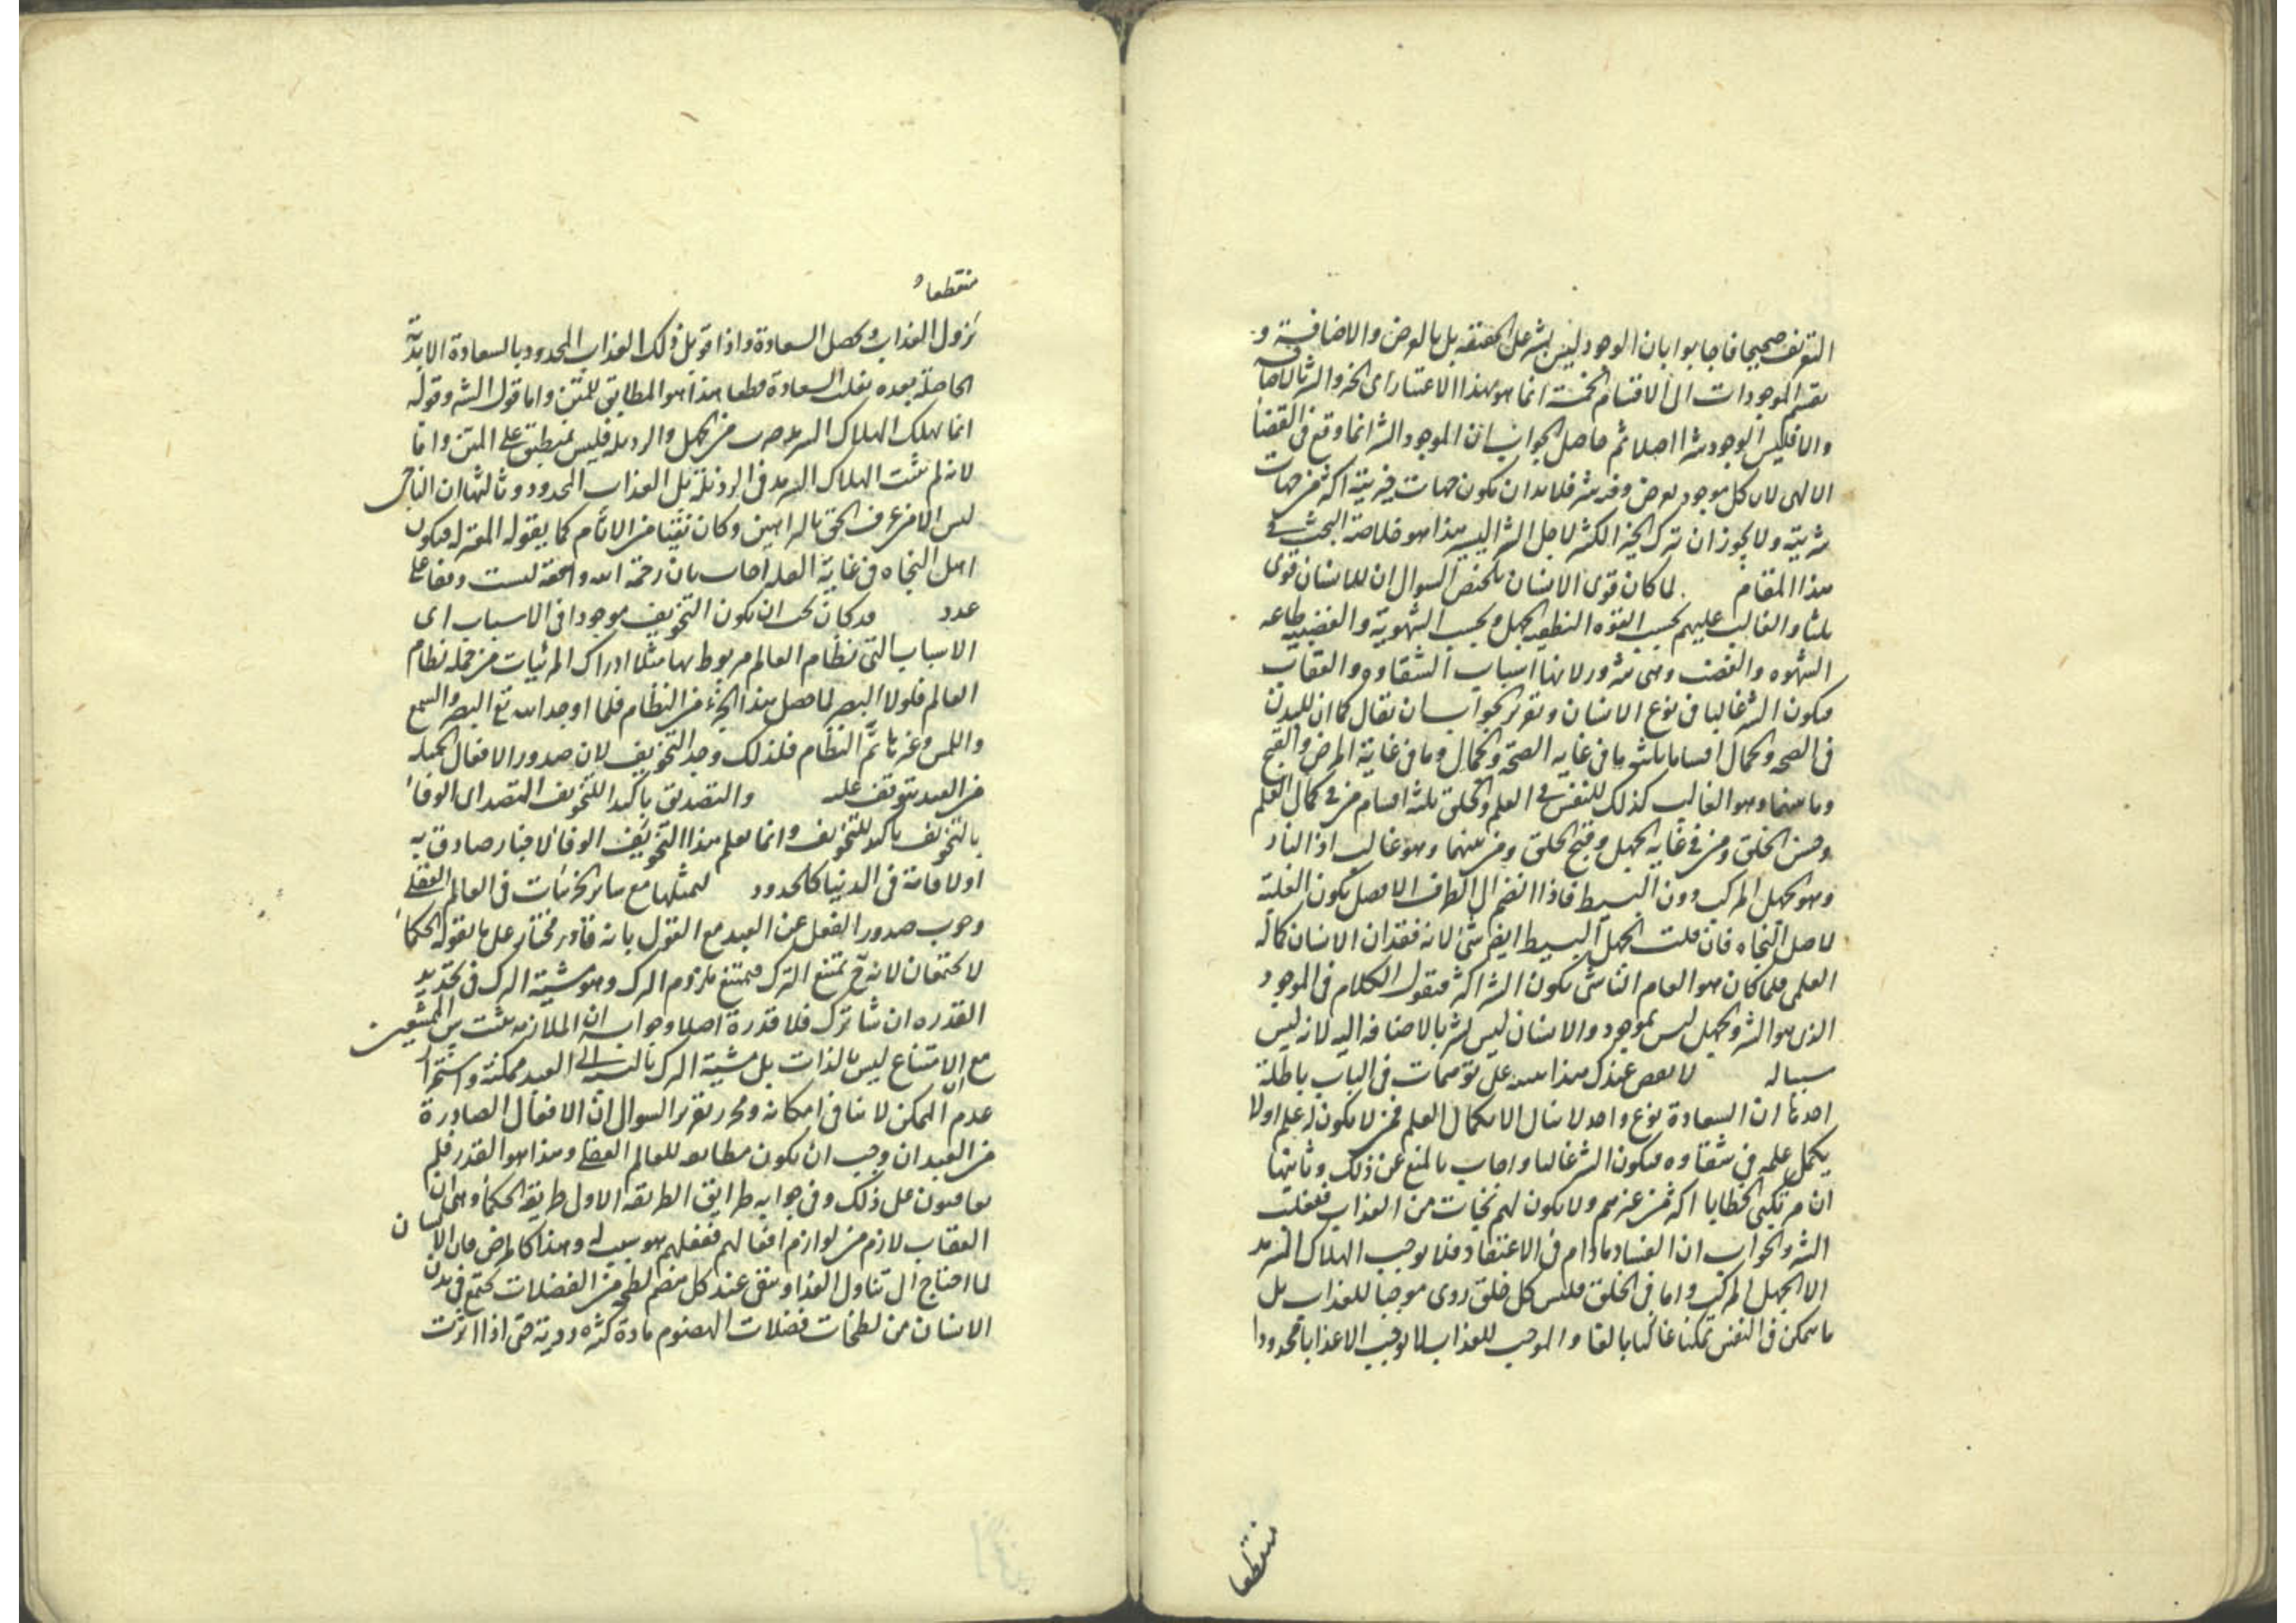 التعريف صحيحا فاجابوا بان الوجود ليس بشر على الحقيقة بل بالعرض والاضافية و
تقسيم الموجودات الى الاقسام الخمسة انما هو بهذا الاعتبار اى الخير والشر بالاضافة
والا فليس الوجود شرا اصلا ثم حاصل الجواب ان الموجود الشر انما وقع فى القضا
الالهى لان كل موجود يعرض وفيه شر فلا بد ان يكون جهات خيريته اكثر من جهات
شريته ولا يجوز ان ترك الخير الكثير لاجل الشر اليسير هذا هو خلاصة البحث فى
هذا المقام لما كان قوى الانسان تلخيص السوال ان للانسان قوى
ثلثا والغالب عليهم بحسب القوة النطقية الجهل وبحسب الشهوية والغضبية طاعة
الشهوه والغضب وهى شرور لانها اسباب الشقاوه والعقاب
فيكون الشر غالبا فى نوع الانسان وتقرير الجواب ان يقال كما ان للبدن
فى الصحة والجمال اقساما ثلثة ما فى غاية الصحة والجمال وما فى غاية المرض والقبح
وما بينهما وهو الغالب كذلك للنفس فى العلم والخلق ثلثة اقسام من فى كمال العلم
وحسن الخلق ومن فى غاية الجهل وقبح الخلق ومن بينهما وهو غالب اذ النادر
وهو الجهل المركب دون البسيط فاذا انضم الى الطرف الافضل يكون الغلبة
لاهل النجاه فان قلت الجهل البسيط ايضا شر لانه فقدان الانسان كماله
العلمى فلما كان هو العام الفاشى يكون الشر اكثر فنقول الكلام فى الموجود
الذى هو الشر والجهل ليس بموجود والانسان ليس بشر بالاضافه اليه لانه ليس
سببا له لا يقعن عندك هذا تنبيه على توهمات فى الباب باطلة
احدها ان السعادة نوع واحد لا ينال الا بكمال العلم فمن لا يكون له علم او لا
يكمل علمه فى شقاوه فيكون الشر غالبا واجاب بالمنع عن ذلك وثانيها
ان مرتكبى الخطايا اكثر من غيرهم ولا يكون لهم نجات من العذاب فغلب
الشر والجواب ان الفساد مادام فى الاعتقاد فلا يوجب الهلاك السرمد
الا الجهل المركب واما فى الخلق فليس كل خلق ردى موجبا للعذاب بل
ما يتمكن فى النفس تمكنا غالبا بالغا والموجب للعذاب لا يوجب الا عذابا محدودا
منقطعا
منقطعا و
يزول العذاب ويحصل السعادة واذا قوبل ذلك العذاب المحدود بالسعادة الابدية
الحاصلة بعده تغلب السعادة قطعا هذا هو المطابق للمتن واما قول الشه وقوله
انما يهلك الهلاك السرمد ضرب من الجهل والرذيلة فليس بمنطبق على المتن وانما
لانه لم يثبت الهلاك السرمد فى الرذيلة بل العذاب المحدود وثالثها ان الناجى
ليس الا من عرف الحق بالبراهين وكان نقيا من الاثام كما يقوله المعتزله فيكون
اهل النجاه فى غاية القلة اجاب بان رحمة الله واسعة ليست وقفا على
عدد قد كان يجب ان يكون التخويف موجودا فى الاسباب اى
الاسباب التى نظام العالم مربوط بها مثلا ادراك المرئيات من جملة نظام
العالم فلولا البصر لما حصل هذا الجزء من النظام فلما اوجد الله تع البصر والسمع
واللمس وغيرها تم النظام فلذلك وجد التخويف لان صدور الافعال الجميلة
من العبد يتوقف عليه والتصديق تاكيد للتخويف التصديق اى الوفاء
بالتخويف تاكيد للتخويف وانما يعلم هذا التخويف الوفا لاخبار صادق به
او لاقامة فى الدنيا كالحدود لتمثلها مع ساير الجزئيات فى العالم العقلى
وجوب صدور الفعل عن العبد مع القول بانه قادر مختار على ما يقوله الحكما
لا يجتمعان لانه ح يمتنع الترك فيمتنع ملزوم الترك وهو مشية الترك فى تحديد
القدره ان شا ترك فلا قدرة اصلا وجوابه ان الملازمه يثبت بين الممتنعين
مع ان الامتناع ليس بالذات بل مشية الترك بالنسبة الى العبد ممكنة واستمرار
عدم الممكن لا ينافى امكانه ومحرر تقرير السوال ان الافعال الصادرة
من العبد ان وجب ان يكون مطابقه للعالم العقلى وهذا هو القدر فلم
يعاقبون على ذلك وفى جوابه طرايق الطريقه الاولى طريقة الحكما وهى ان
العقاب لازم من لوازم افعالهم ففعلهم هو سبب له وهذا كالمرض فان الانسان
لما احتاج الى تناول الغذا ويبقى عند كل هضم لطخ من الفضلات يجتمع فى بدن
الانسان من لطخات فضلات الهضوم مادة كثيره ردية حتى اذا اثرت